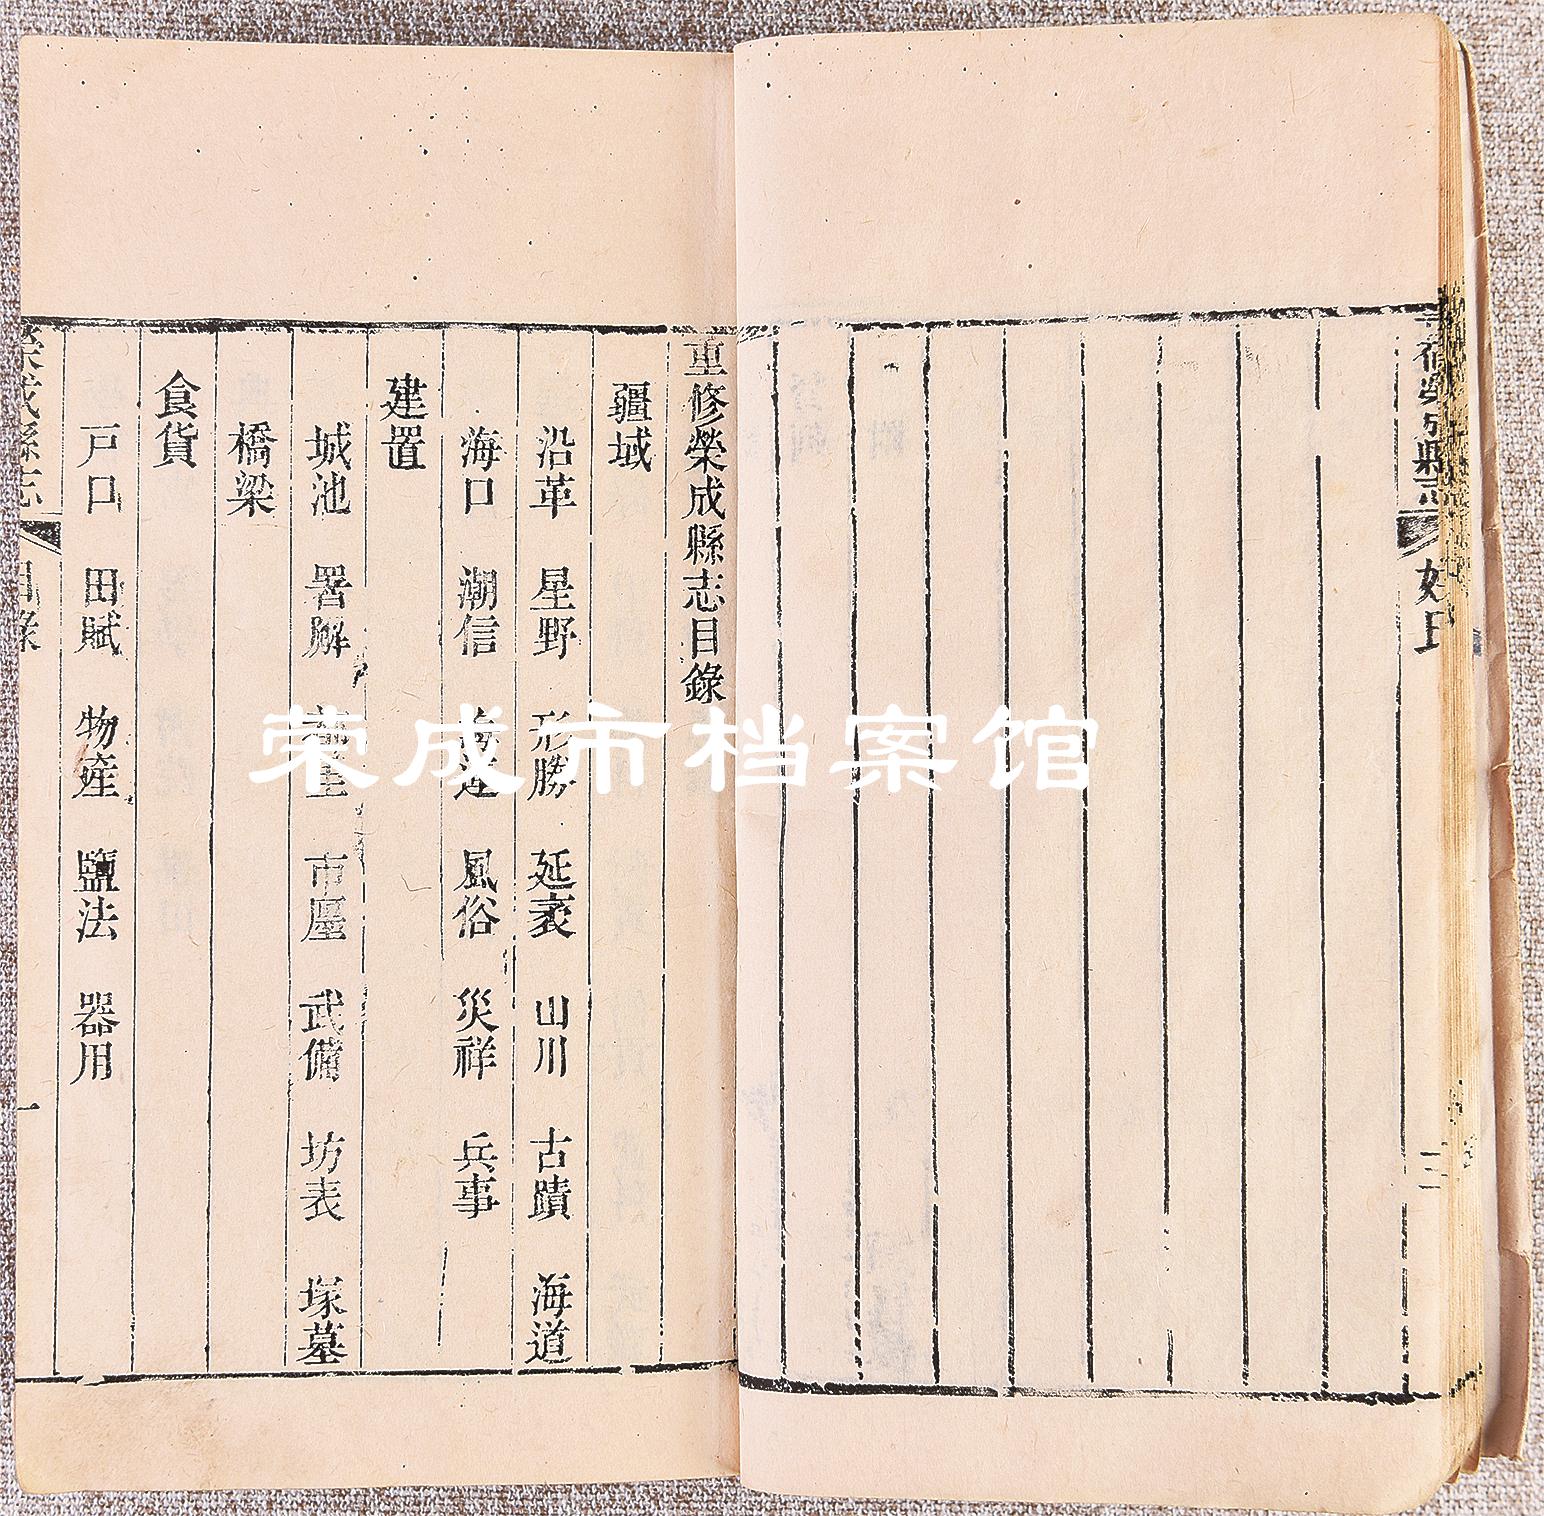 重修榮成縣志目錄
疆域
沿革 星野 形勝 延袤 山川 古蹟 海道
海口 潮信 海運 風俗 災祥 兵事
建置
城池 署廨 市廛 武備 坊表 塚墓
橋梁
食貨
戶口 田賦 物產 鹽法 器用
榮成縣志 目錄 一
荣成市档案馆